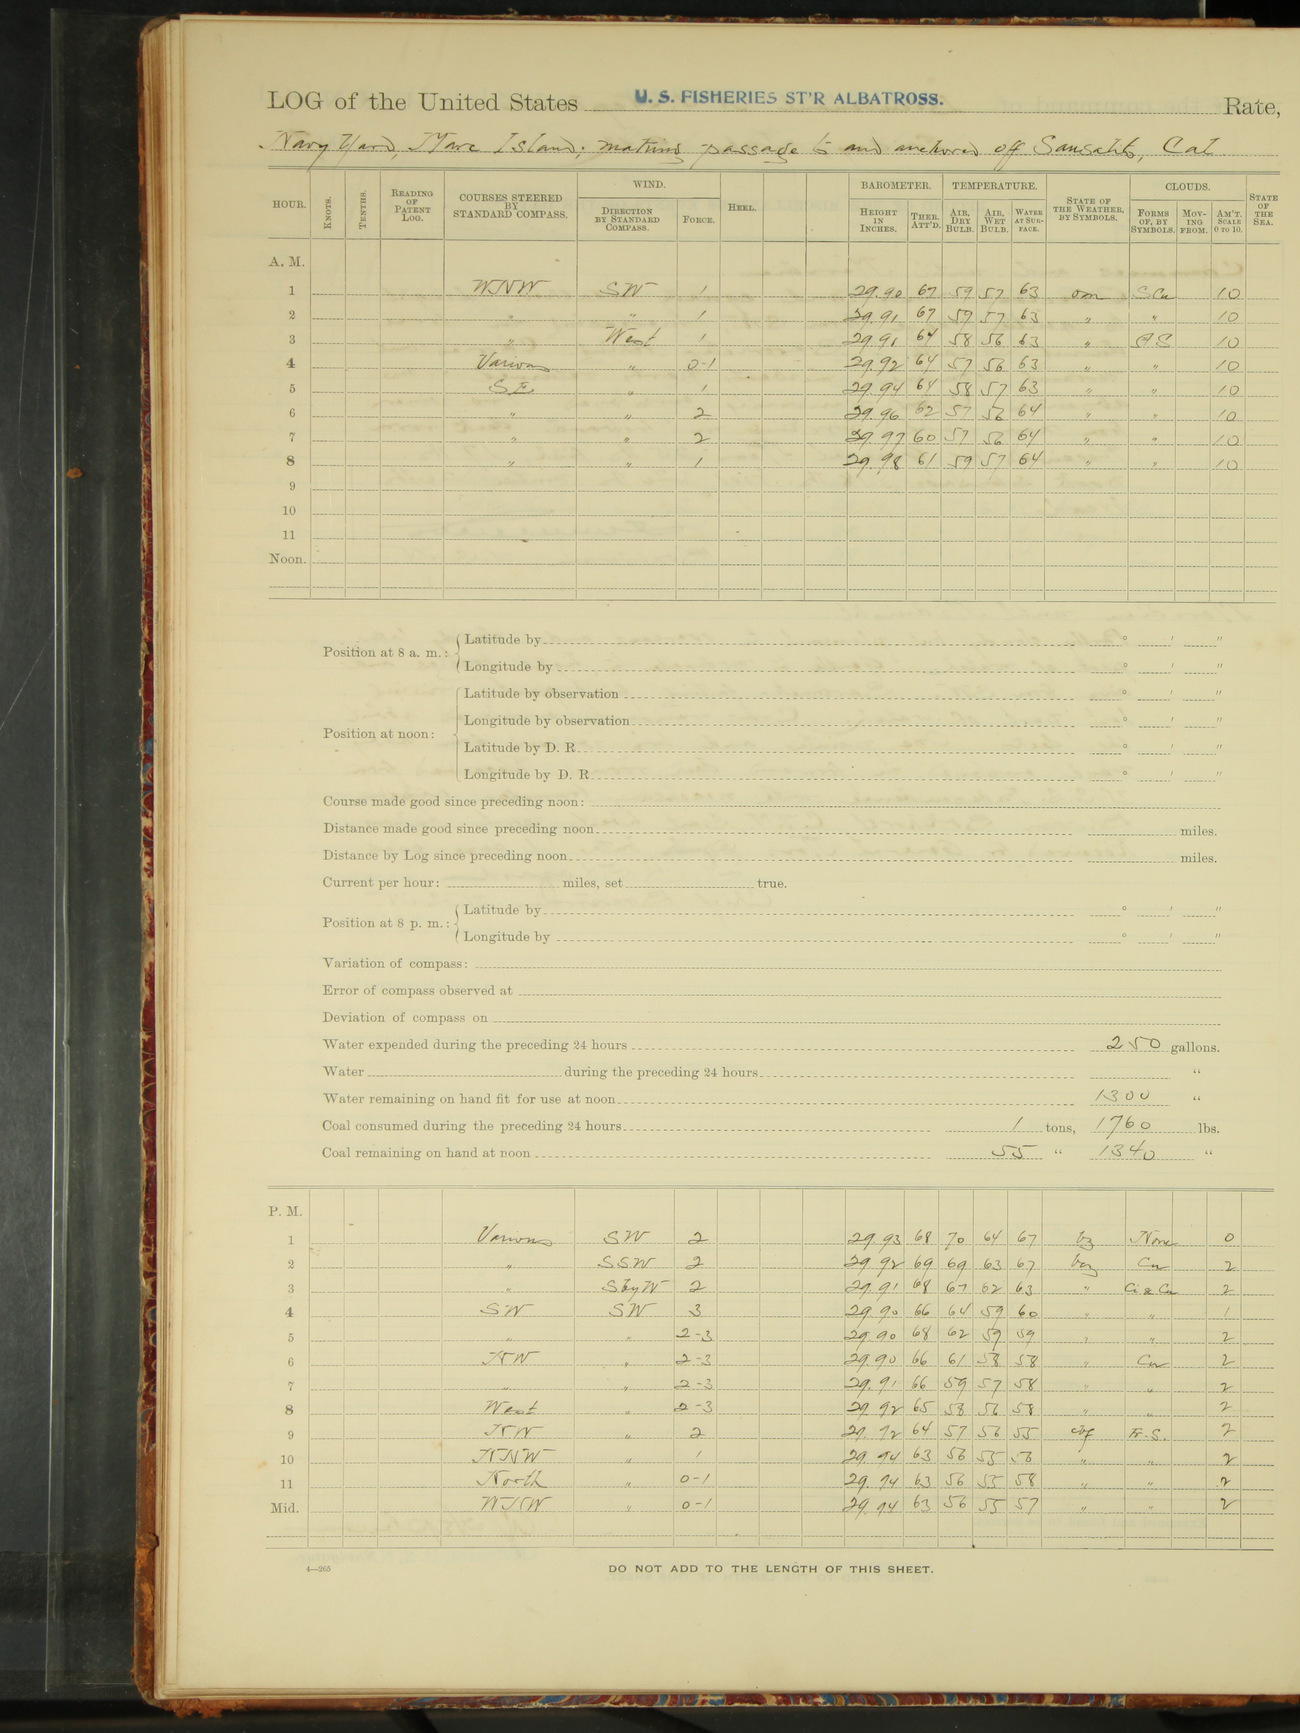 LOG of the United States U. S. FISHERIES ST'R ALBATROSS. Rate,
Navy Yard, Mare Island; making passage to and anchored off Sausalito, Cal
HOUR. KNOTS. TENTHS. READING OF PATENT LOG. COURSES STEERED BY STANDARD COMPASS. WIND. DIRECTION BY STANDARD COMPASS. FORCE. HEEL. BAROMETER. HEIGHT IN INCHES. THER. ATT'D. TEMPERATURE. AIR, DRY BULB. AIR, WET BULB. WATER AT SURFACE. STATE OF THE WEATHER, BY SYMBOLS. CLOUDS. FORMS OF, BY SYMBOLS. MOVING FROM. AM'T. SCALE 0 TO 10. STATE OF THE SEA.
A. M.
1 WNW SW 1 29.90 67 59 57 63 om S Cu 10
2 " " 1 29.91 67 59 57 63 " " 10
3 " West 1 29.91 64 58 56 63 " 10
4 Various " 0-1 29.92 64 57 56 63 " " 10
5 SE " 1 29.94 64 58 57 63 " " 10
6 " " 2 29.96 62 57 56 64 " " 10
7 " " 2 29.97 60 57 56 64 " " 10
8 " " 1 29.98 61 59 57 64 " " 10
9
10
11
Noon.
Position at 8 a. m.: Latitude by ° ' "
Longitude by ° ' "
Position at noon: Latitude by observation ° ' "
Longitude by observation ° ' "
Latitude by D. R. ° ' "
Longitude by D. R. ° ' "
Course made good since preceding noon:
Distance made good since preceding noon miles.
Distance by Log since preceding noon miles.
Current per hour: miles, set true.
Position at 8 p. m.: Latitude by ° ' "
Longitude by ° ' "
Variation of compass:
Error of compass observed at
Deviation of compass on
Water expended during the preceding 24 hours 250 gallons.
Water during the preceding 24 hours "
Water remaining on hand fit for use at noon 1300 "
Coal consumed during the preceding 24 hours 1 tons, 1760 lbs.
Coal remaining on hand at noon 55 " 1340 "
P. M.
1 Various SW 2 29.93 68 70 64 67 bz None 0
2 " SSW 2 29.92 69 69 63 67 bcz Cu 2
3 " SbyW 2 29.91 68 67 62 63 " Ci & Cu 2
4 SW SW 3 29.90 66 64 59 60 " " 1
5 " " 2-3 29.90 68 62 59 59 " " 2
6 NW " 2-3 29.90 66 61 58 58 " Cu 2
7 " " 2-3 29.91 66 59 57 58 " " 2
8 West " 2-3 29.92 65 58 56 58 " " 2
9 NW " 2 29.92 64 57 56 55 Fr-S. 2
10 NNW " 1 29.94 63 56 55 56 " " 2
11 North " 0-1 29.94 63 56 55 58 " " 2
Mid. WNW " 0-1 29.94 63 56 55 57 " " 2
4—265 DO NOT ADD TO THE LENGTH OF THIS SHEET.